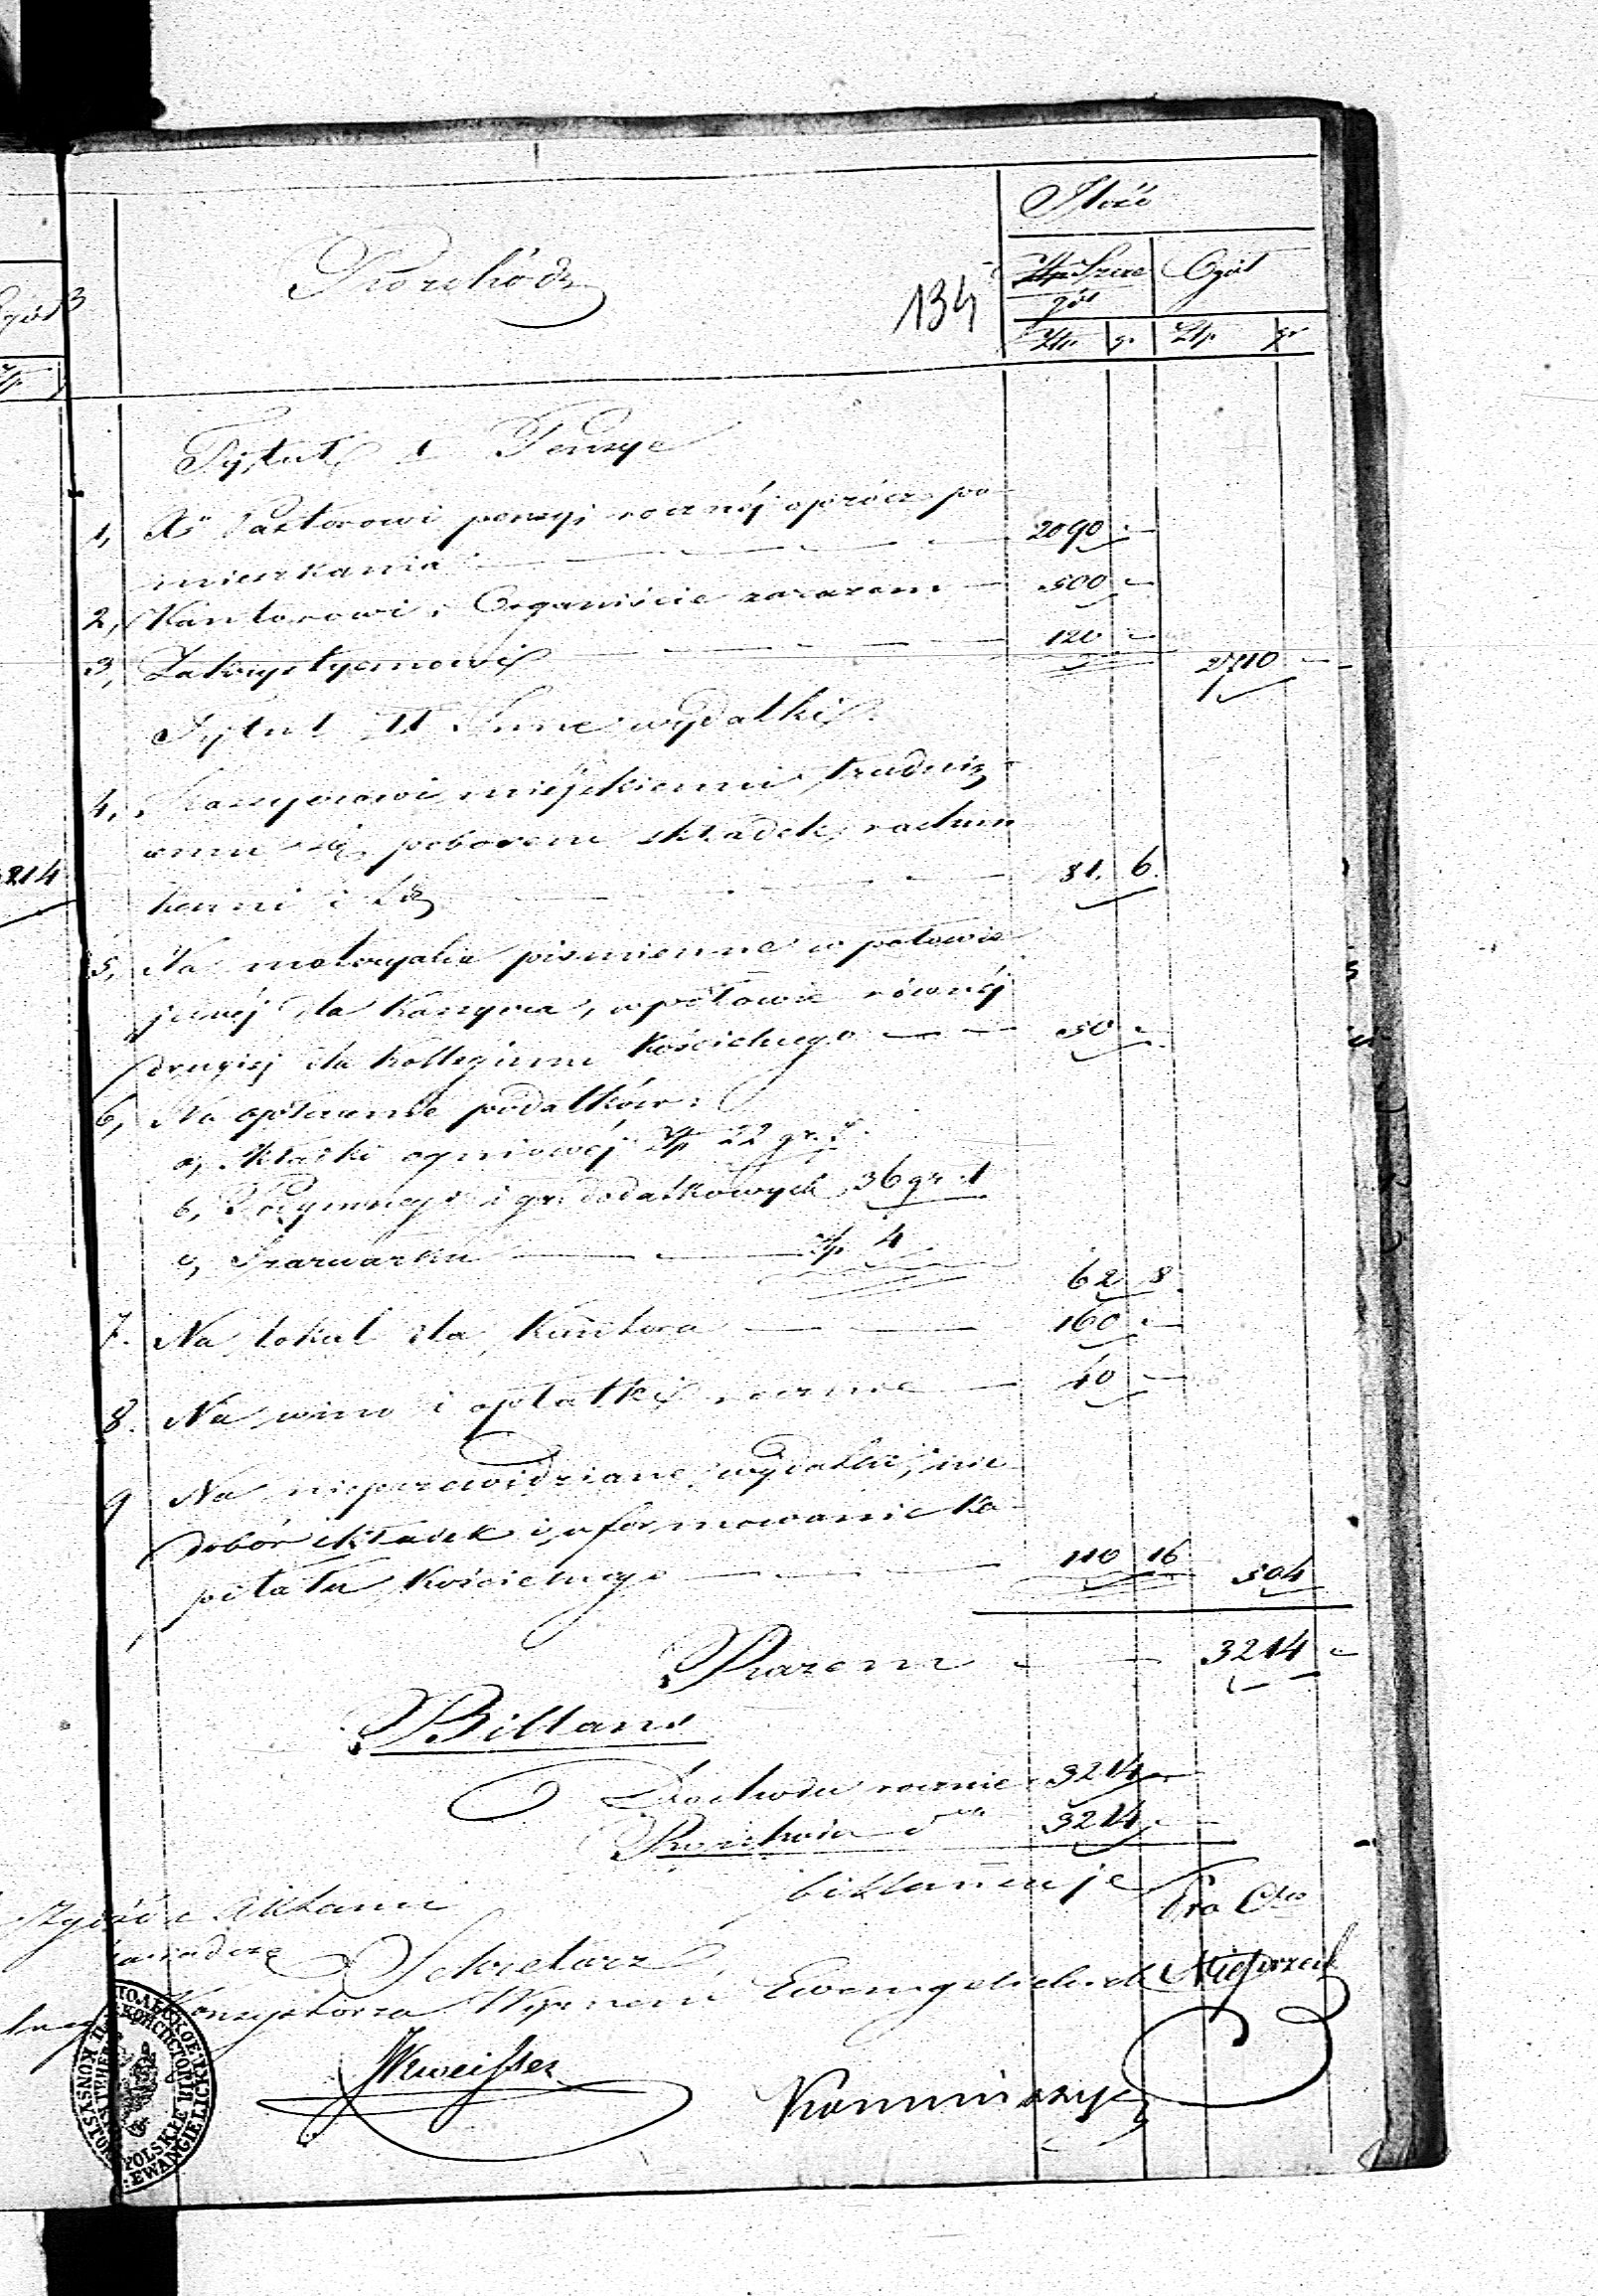 Rozchód
134
Ilość
Szcze
gół
Ogół
Złp gr Złp gr
Tytuł I Pensye
1, X. Pastorowi pensyi rocznéj oprócz po-
mieszkania 2090 -
2, Kantorowi i Organiście zarazem 500 -
3, Zakrystyanowi 120 -
2710 -
Tytuł II Inne wydatki
4, Kassyerowi miejskiemu trudnią-
cemu się poborem składek, rachun
kami i t.d. 81. 6.
214
5, Na materyalia piśmienne w połowie
jednéj dla Kassyera, w połowie równéj
drugiej dla Kollegium Kościelnego 50 -
6, Na opłacenie podatków:
a, składki ogniowéj Złp 22 gr.
b, Podymnego i gr. dodatkowych 36 gr. 1
c, Szarwarku Złp 4
62 8
7. Na lokal dla Kantora 160 -
8. Na wino i opłatki rocznie 40 -
9 Na nieprzewidziane wydatki, nie
dobór składek i uformowanie ka-
pitału Kościelnego 110 16 504
Razem 3214 -
Billans
Dochodu rocznie 3214
Rozchodu 3214
billansuje
Zgodność z Aktami
zaświadcza
Sekretarz
Konsystorza Wyznań Ewangelickich
Kommissyi
KONSYSTORZ EWANGIELICKI
POLSKIE